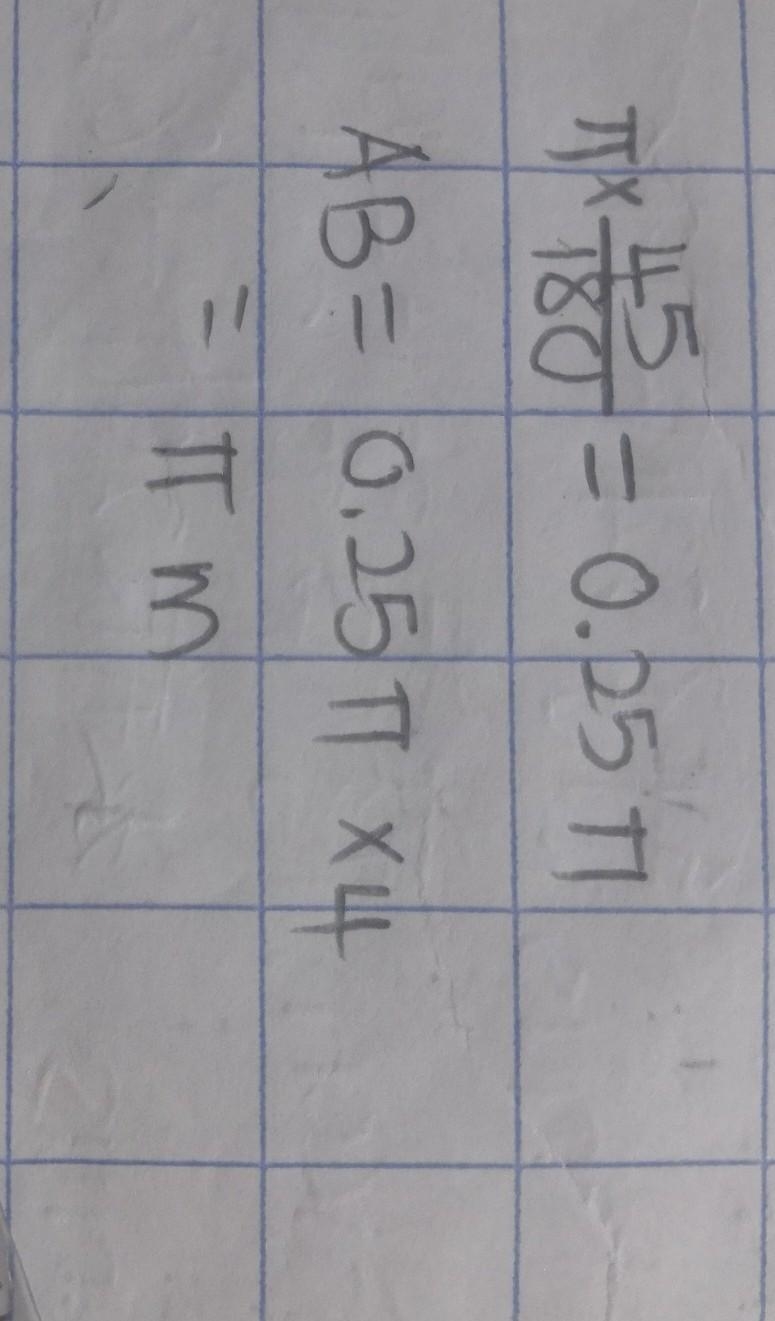 π × 45/180 = 0.25 π
AB = 0.25 π × 4
= π m